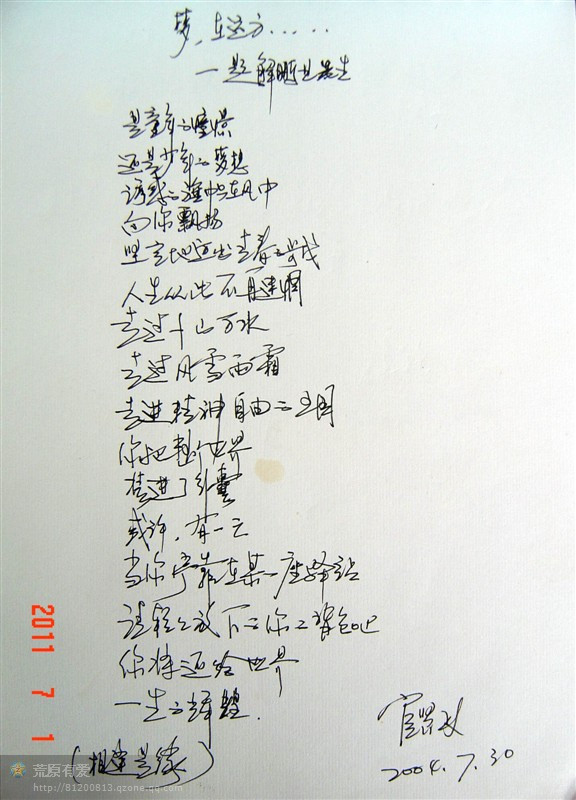 梦，在远方……
是童年的憧憬
还是少年的梦想
诱惑的旗帜在风中
向你飘扬
坚定地迈出青春
人生从此不再迷惘
走过千山万水
走过风雪雨霜
走进精神自由的王国
你把整个世界
装进了行囊
或许，有一天
当你停靠在某一座驿站
请轻轻放下你的背包吧
你将还给世界
一生的辉煌.
(相逢是缘)
2004.7.30
2011 7 1
荒原有爱
http://81200813.qzone.qq.com